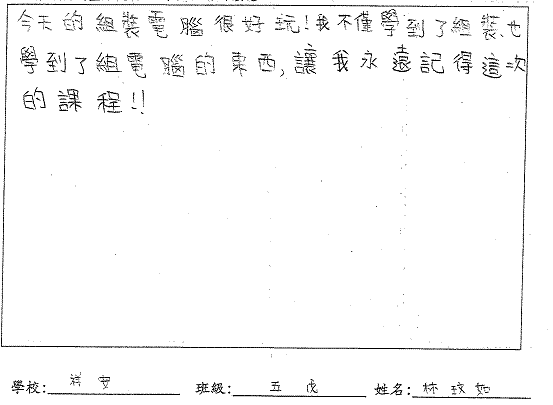 今天的組裝電腦很好玩!我不僅學到了組裝、也
學到了組電腦的東西,讓我永遠記得這次
的課程!!
學校: 祥安 班級: 五戊 姓名: 林玟如